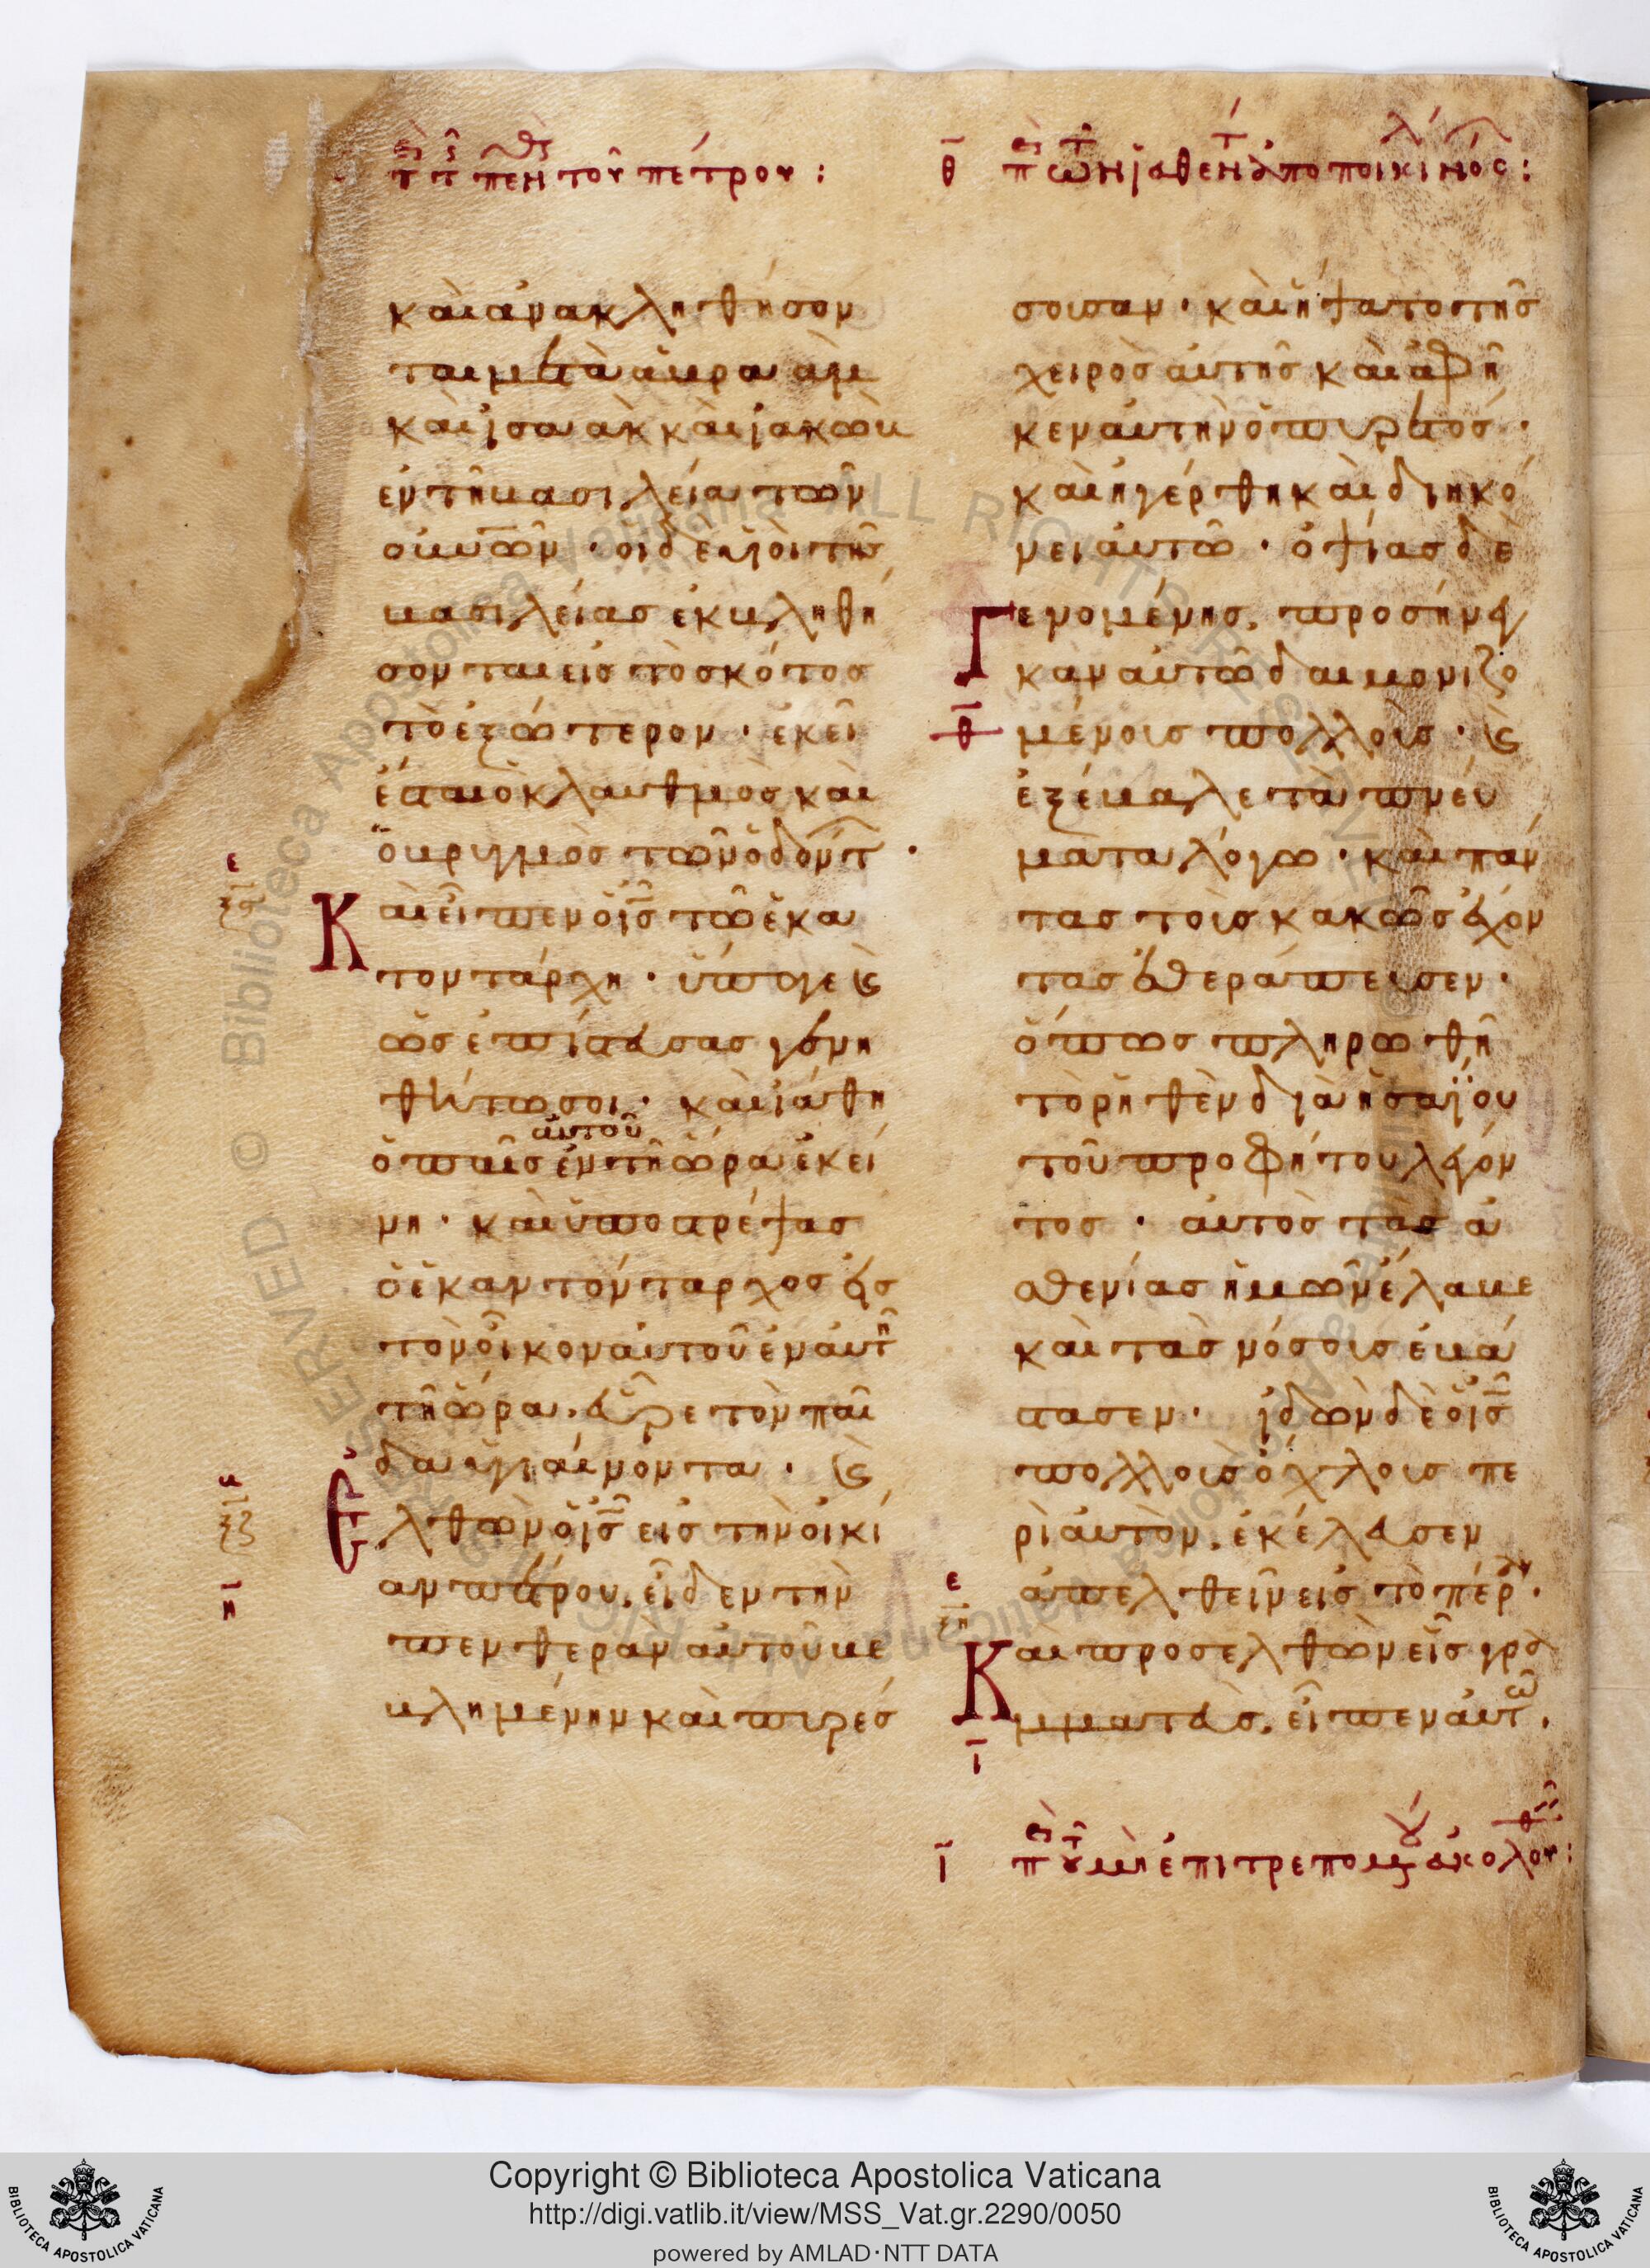 καὶ ἀνακληθήσον
ται μετὰ ἀβραὰμ
καὶ ἰσαὰκ καὶ ἰακὼβ
ἐν τῆ βασιλεία τῶν
οὐν̅ῶν · οἱ δὲ υἱοὶ τῆς
βασιλείας ἐκβληθή
σονται εἰς τὸ σκότος
τὸ ἐξώτερον · ἐκεῖ
ἔσται ὁ κλαυθμὸς καὶ
ὁ βρυγμὸς τῶν ὀδόντ ·
Καὶ εἶπεν ὁ ις̅ τῶ ἑκα
τοντάρχη · ὕπαγε κ
ὡς ἐπίστευσας γενη
θήτω σοι · καὶ ἰάθη
αὐτοῦ
ὁ παῖς ἐν τῆ ὥρα ἐκεί
νη · καὶ ὑποστρέψας
ὁ ἑκατόνταρχος εἰς
τὸν οἶκον αὐτοῦ ἐν αὐτῆ
τῆ ὥρα, εὗρε τὸν παῖ
δα ὑγιαίνοντα · κ
Ελθὼν ὁ ις̅ εἰς τὴν οἰκί
αν πέτρου, εἶδεν τὴν
πενθερὰν αὐτοῦ βε
βλημένην καὶ πυρέσ
σουσαν · καὶ ἥψατο τῆς
χειρὸς αὐτῆς καὶ ἀφῆ
κεν αὐτὴν ὁ πυρετός ·
καὶ ἠγέρθη καὶ διηκό
νει αὐτῶ · ὀψίας δὲ
Γενομένης, προσήνεγ
καν αὐτῶ δαιμονιζο
μένους πολλούς · κ
ἐξέβαλε τὰ πνεύ
ματα λόγω · καὶ πάν
τας τοὺς κακῶς ἔχον
τας ἐθεράπευσεν ·
ὅπως πληρωθῆ
τὸ ῥηθὲν διὰ ἡσαΐου
τοῦ προφήτου λέγον
τος · αὐτὸς τὰς ἀ
σθενίας ἡμῶν ἔλαβε
καὶ τὰς νόσους ἐβά
στασεν · ἰδὼν δὲ ὁ ις̅
πολλοὺς ὄχλους πε
ρὶ αὐτὸν, ἐκέλευσεν
ἀπελθεῖν εἰς τὸ πέρ ·
Καὶ προσελθὼν εἷς γρα
μματεὺς, εἶπεν αὐτῶ,
Copyright © Biblioteca Apostolica Vaticana
http://digi.vatlib.it/view/MSS_Vat.gr.2290/0050
powered by AMLAD·NTT DATA